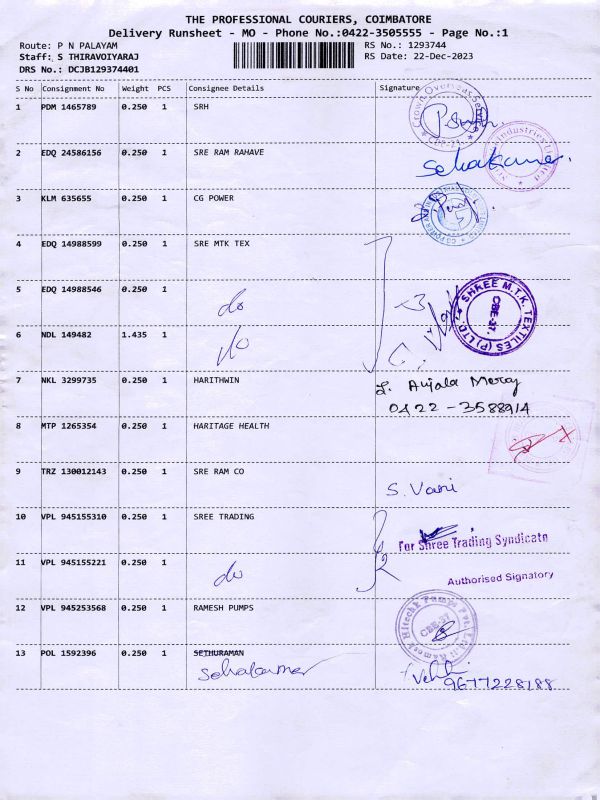 THE PROFESSIONAL COURIERS, COIMBATORE
Delivery Runsheet - MO - Phone No.:0422-3505555 - Page No.:1
Route: P N PALAYAM
RS No.: 1293744
Staff: S THIRAVOIYARAJ
RS Date: 22-Dec-2023
DRS No.: DCJB129374401
S No Consignment No Weight PCS Consignee Details Signature
1 PDM 1465789 0.250 1 SRH
Crown Overseas
2 EDQ 24586156 0.250 1 SRE RAM RAHAVE
Industries Limited
3 KLM 635655 0.250 1 CG POWER
4 EDQ 14988599 0.250 1 SRE MTK TEX
5 EDQ 14988546 0.250 1 do
SHREE M.T.K. TEXTILES (P) LTD.
CBE-37.
6 NDL 149482 1.435 1 do
7 NKL 3299735 0.250 1 HARITHWIN
Anjala Mercy
0422-3588914
8 MTP 1265354 0.250 1 HARITAGE HEALTH
9 TRZ 130012143 0.250 1 SRE RAM CO
S. Vani
10 VPL 945155310 0.250 1 SREE TRADING
For Shree Trading Syndicate
11 VPL 945155221 0.250 1 do
Authorised Signatory
12 VPL 945253568 0.250 1 RAMESH PUMPS
Ramesh Hitechh Pumps Pvt. Ltd.
CBE-37
13 POL 1592396 0.250 1 SETHURAMAN
9677228188